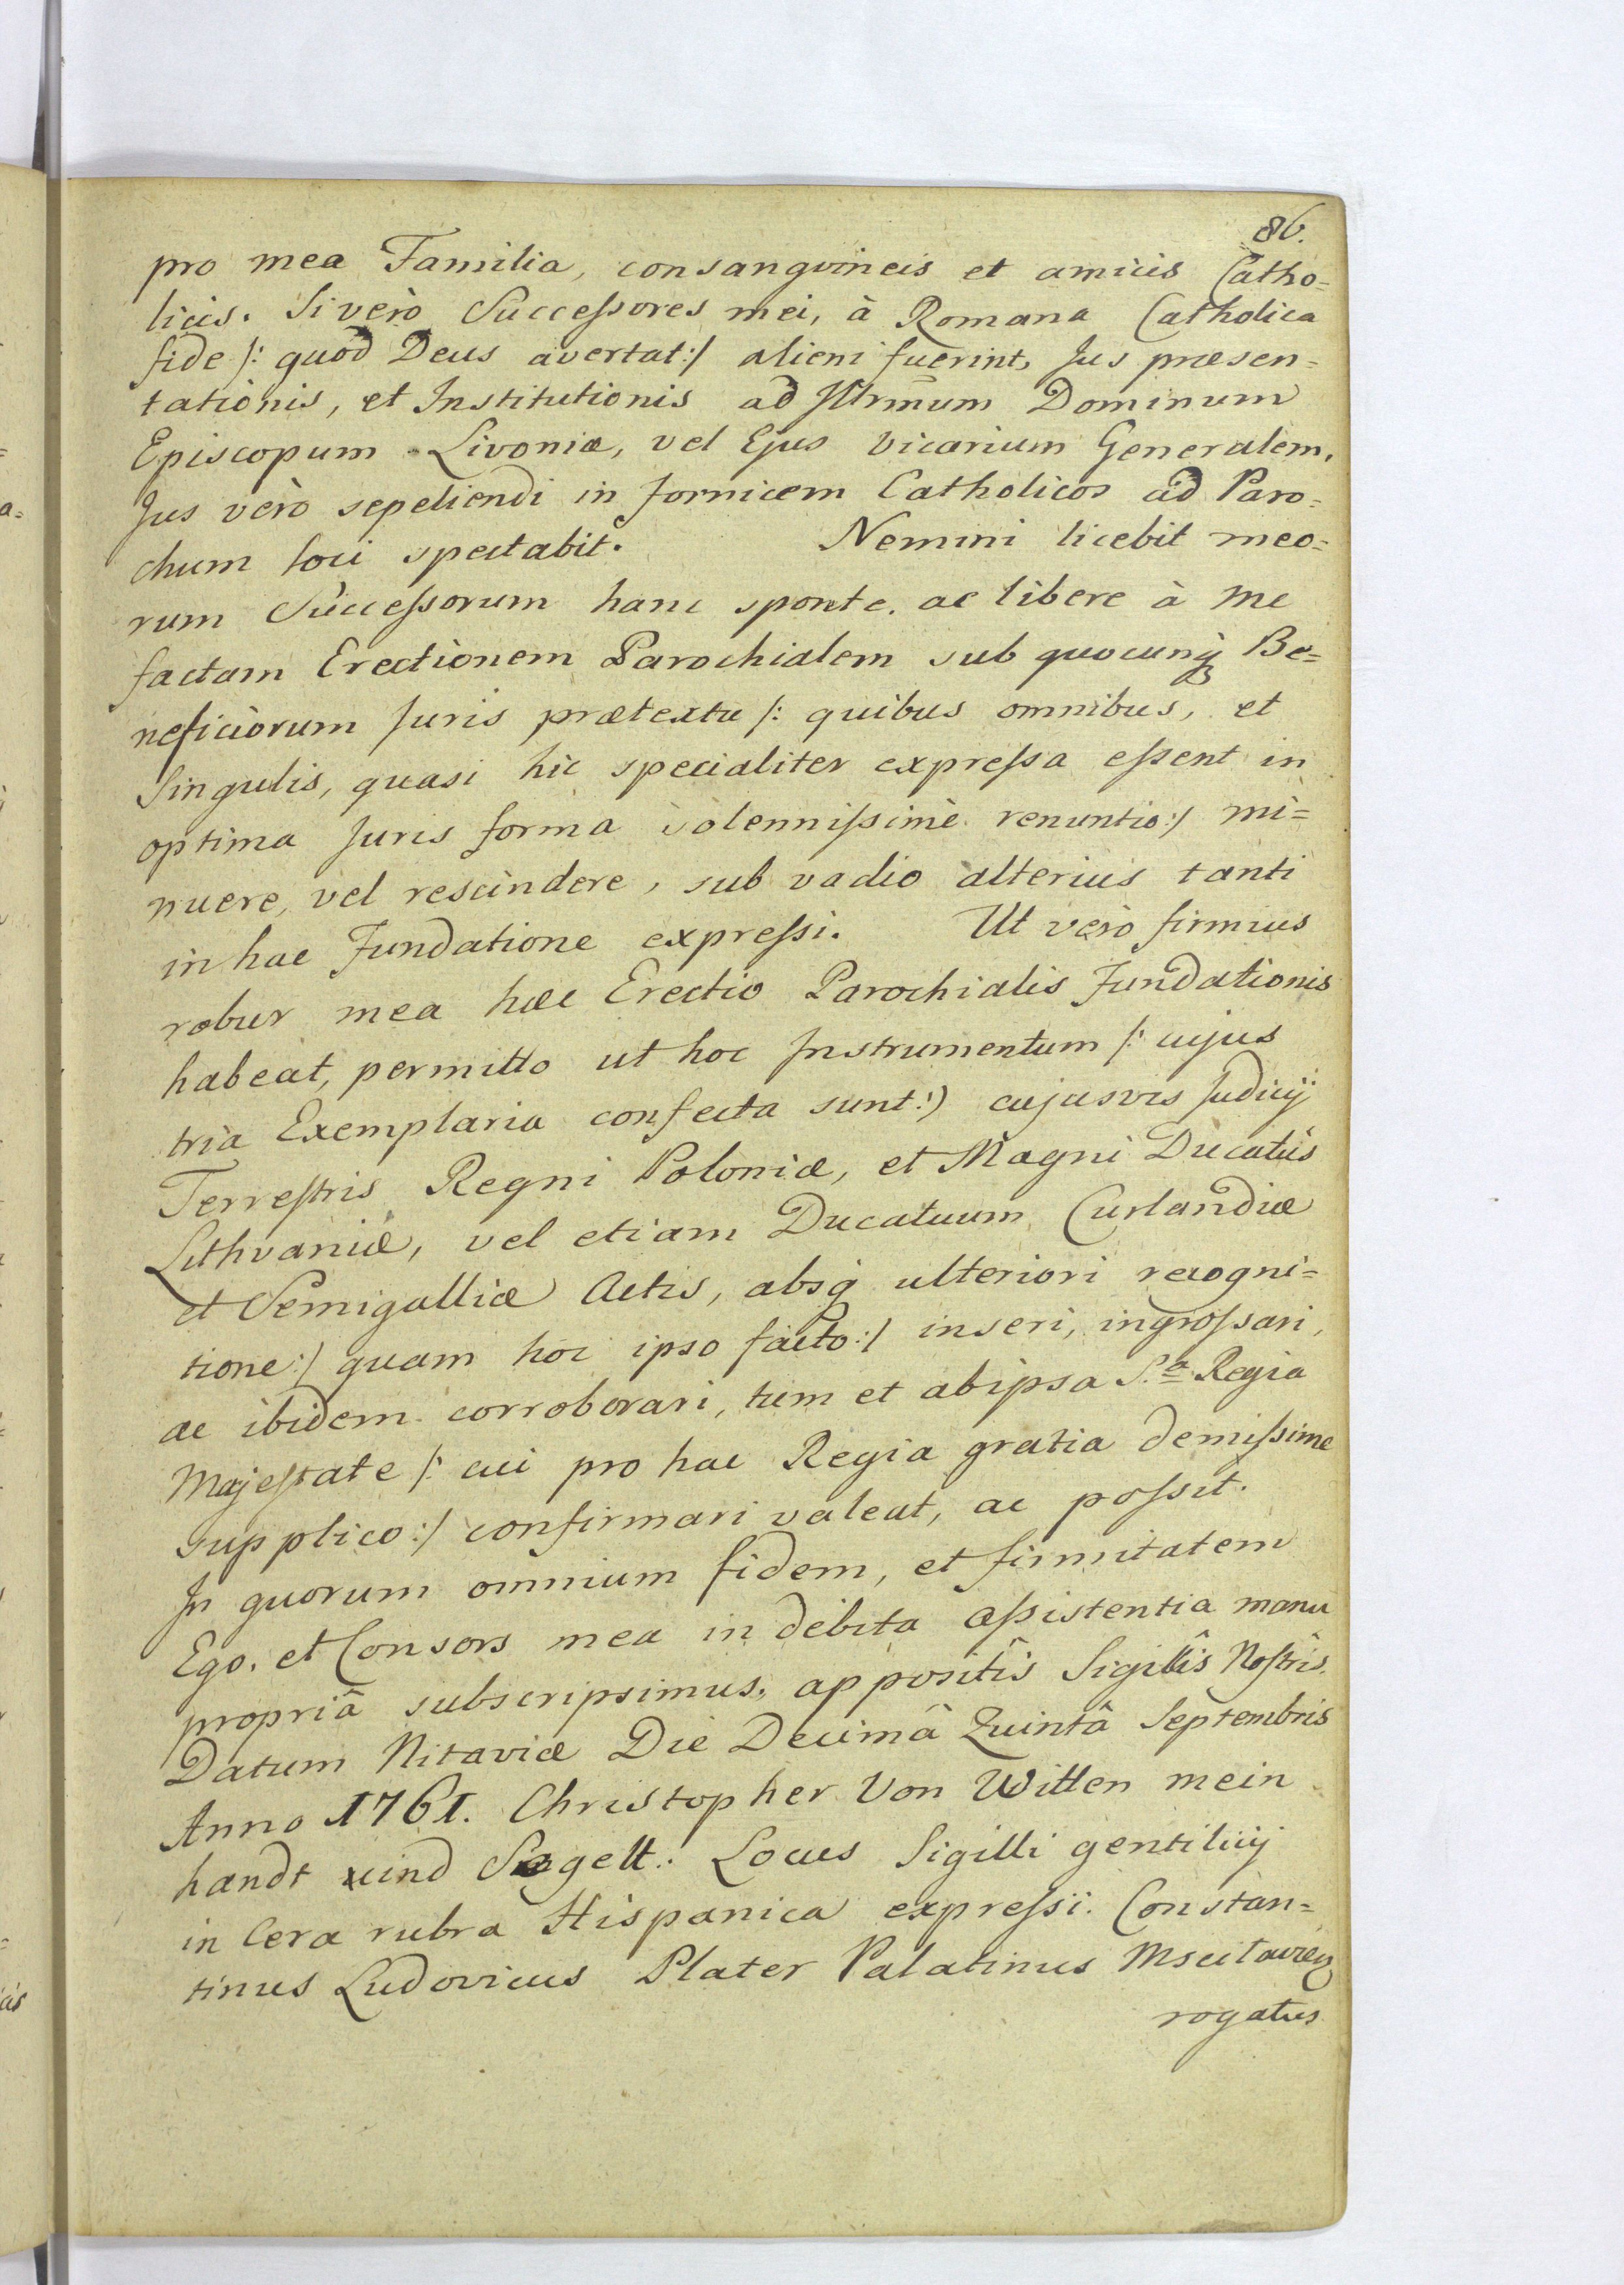 86.
pro mea Familia, consangvineis et amicis Catho=
licis. Si verò Successores mei, à Romana Catholica
fide /: quod Deus avertat :/ alieni fuerint, Jus præsen=
tationis, et Institutionis ad Illrm̃um Dominum
Episcopum Livoniæ, vel Ejus Vicarium Generalem,
Jus verò sepeliendi in fornicem Catholicos ad Paro=
chum loci spectabit. Nemini licebit meo=
rum Successorum hanc sponte. ac libere à me
factam Erectionem Parochialem sub quocunq Be=
neficiorum Juris prætextu /: quibus omnibus, et
Singulis, quasi hic specialiter expressa essent in
optima Juris forma solennissimè renuntio :/ mi=
nuere, vel rescindere, sub vadio alterius tanti
in hac Fundatione expressi. Ut verò firmius
robur mea hæc Erectio Parochialis Fundationis
habeat, permitto ut hoc Instrumentum /: cujus
tria Exemplaria confecta sunt :) cujusvis Judicij
Terrestris Regni Poloniæ, et Magni Ducatûs
Lithvaniæ, vel etiam Ducatuum Curlandiæ
et Semigalliæ Actis, absq ulteriori recogni=
tione :/ quam hoc ipso facto :/ inseri, ingrossari,
ac ibidem corroborari, tum et ab ipsa S.ª Regia
Majestate /: cui pro hac Regia gratia demissime
supplico :/ confirmari valeat, ac possit.
In quorum omnium fidem, et firmitatem
Ego. et Consors mea in debita assistentia manu
propriâ subscripsimus. appositîs Sigillîs Nostrîs.
Datum Mitaviæ Die Decimâ Quintâ Septembris
Anno 1761. Christopher Von Witten mein
handt und Segell. Locus Sigilli gentilicij
in Cera rubra Hispanica expressi. Constan=
tinus Ludovicus Plater Palatinus
rogatus
a=
cis